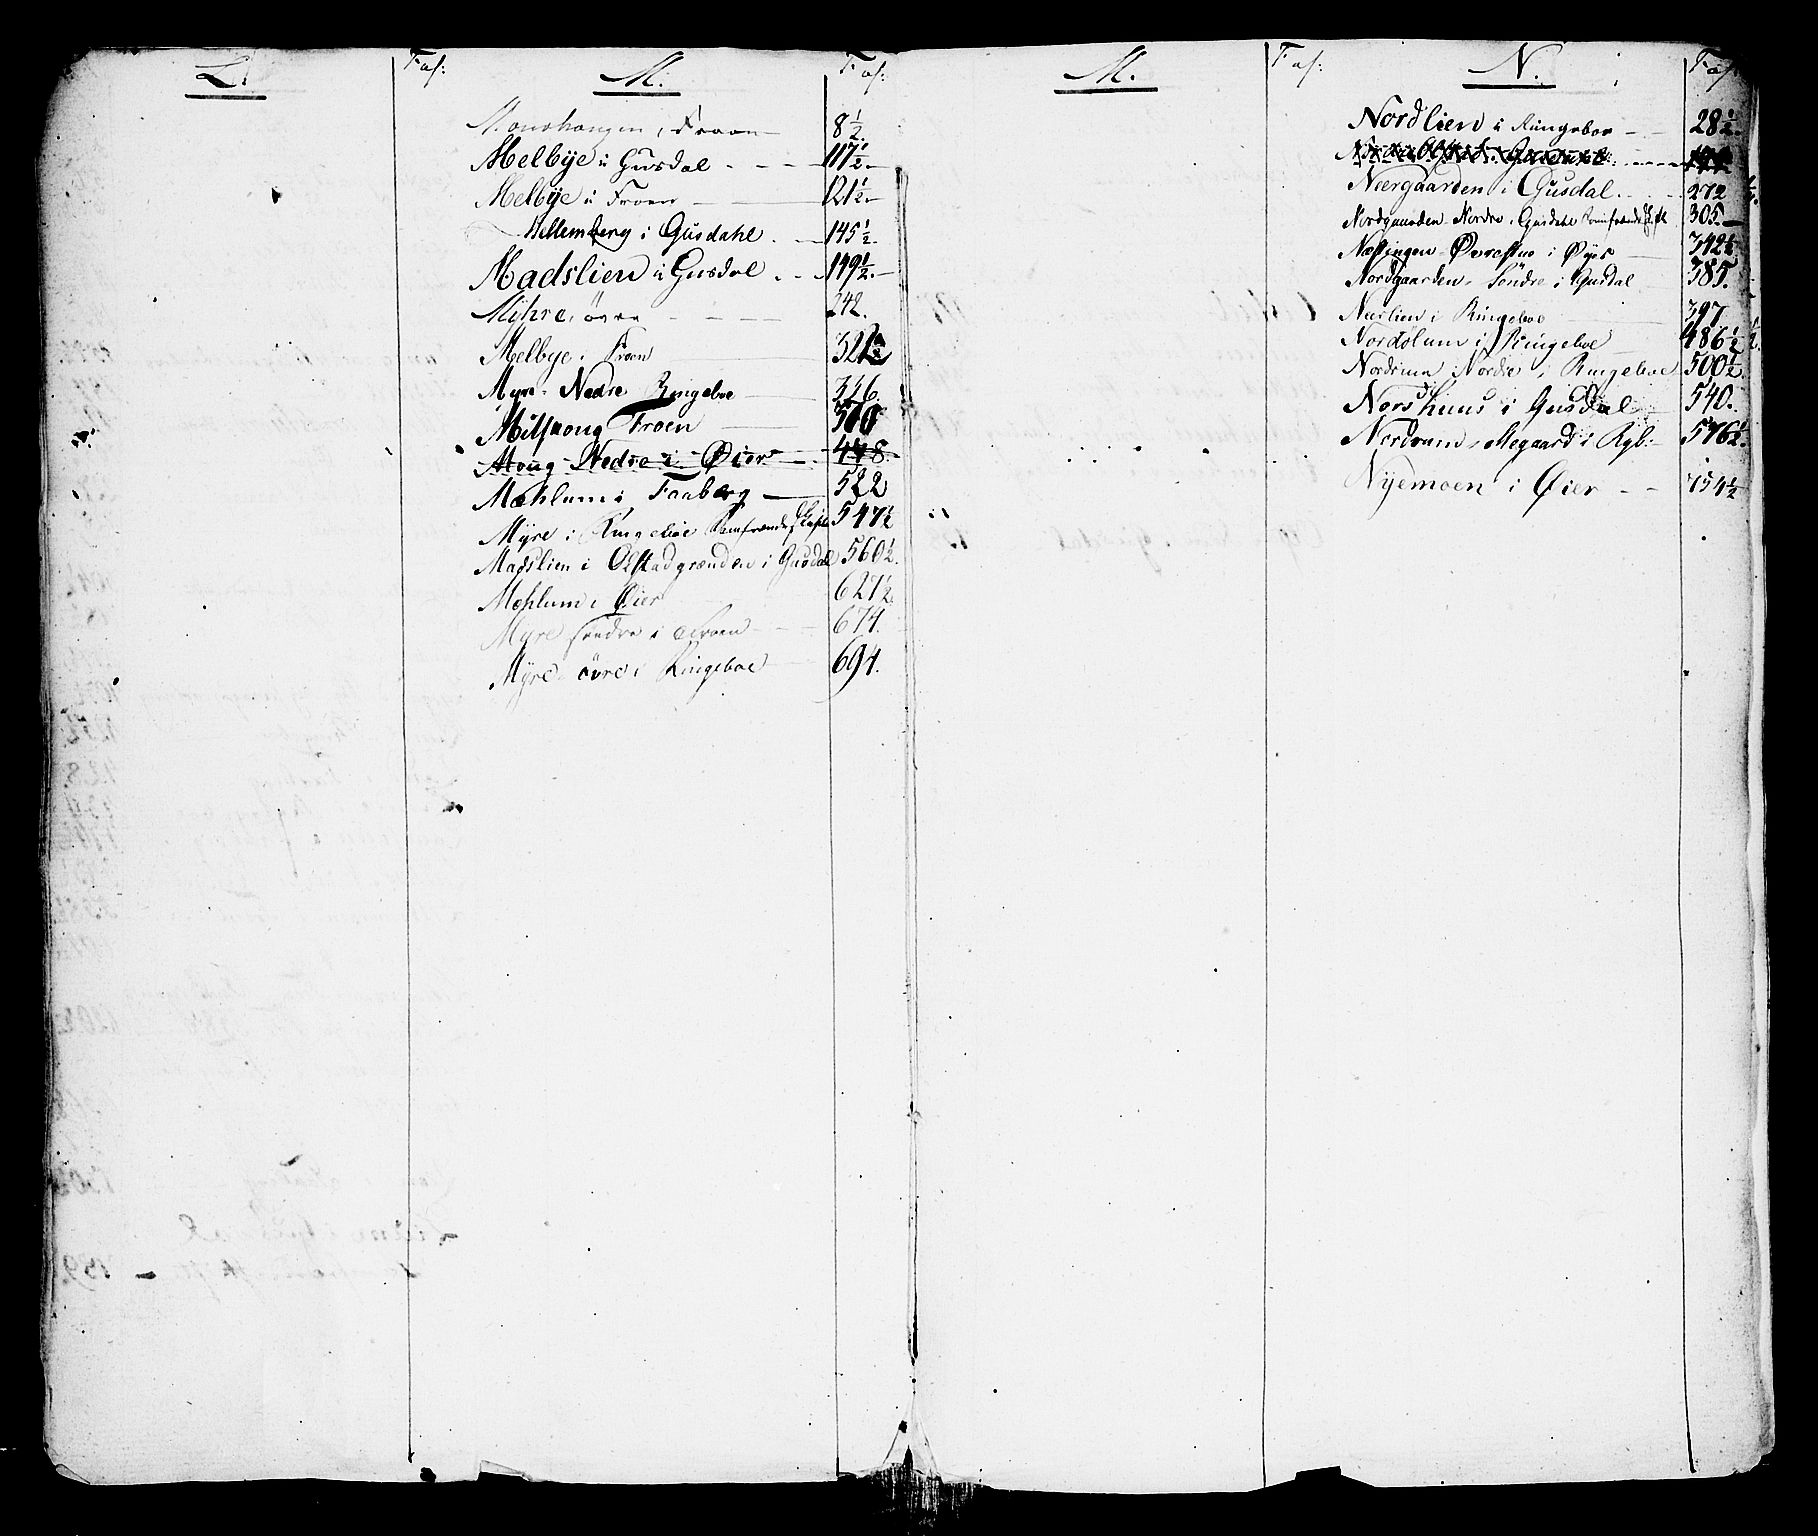 L.
Fol:
M.
Fol:
Froen 8 1/2.
Melbÿe i Gusdal 117 1/2
Melbÿe i Froen 121 1/2
Mellemberg i Gusdahl 145 1/2
Madslien i Gusdal 149 1/2
Mÿhre, övre 242.
Melbye i Froen 321 1/2
Myre Nedre Ringeboe 346.
Froen 370
Moug Nedre i Øier 478
Mæhlum i Faaberg 522
Mÿre i Ringeboe Samfrænde Skifte 547 1/2
Madslien i Olstadgrænden i Gusdal 560 1/2.
Mæhlum i Øier 627 1/2
Mÿre söndre i Froen 674.
Mÿre övre i Ringeboe 694.
M.
Fol:
N.
Fol:
Nordlien i Ringeboe 28 1/2
Neergaarden i Gusdal 272
Nordgaarden Nordre i Gusdahl Samfrænde Skift 305.
Næstingen 342 1/2
Nordgaarden Söndre i Gusdal 385.
Nærlien i Ringeboe 397
Nordolum i Ringeboe 486 1/2
Nordrum Nordre i Ringeboe 500 1/2
Nordshuus i Gusdal 540.
Nordrum Megaard i Rgb: 576 1/2
Nÿemoen i Øier 754 1/2